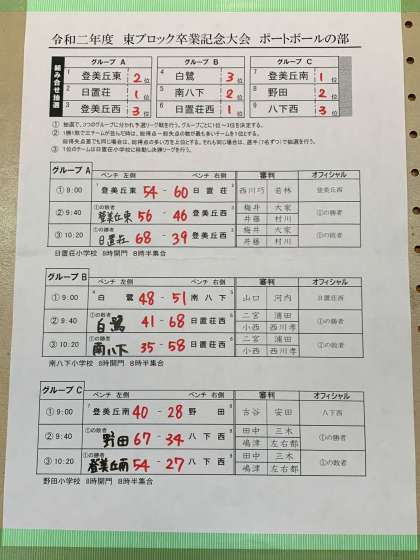 令和二年度 東ブロック卒業記念大会 ポートボールの部
組み合せ抽選
グループ A グループ B グループ C
1 登美丘東 2位 4 白鷺 3位 7 登美丘南 1位
2 日置荘 1位 5 南八下 2位 8 野田 2位
3 登美丘西 3位 6 日置荘西 1位 9 八下西 3位
① 抽選で、3つのグループに分かれ予選リーグ戦を行う。グループごとに1位~3位を決定する。
② 1勝1敗で三チームが並んだ時は、総得点-総失点の数が最も多いチームを1位とする。
総得失点差でも同じ場合は、総得点の多い方を上位とする。それも同じ場合は、選手(7名ずつ)で抽選を行う。
③ 1位のチームは日置荘小学校に移動し決勝リーグを行う。
グループ A
ベンチ 左側 ベンチ 右側 審判 オフィシャル
① 9:00 1 登美丘東 54 - 60 日置荘 2 西川巧 若林 登美丘西
② 9:40 ①の敗者 登美丘東 56 - 46 登美丘西 3 梅井 大家 井藤 村川 ①の勝者
③ 10:20 ①の勝者 日置荘 68 - 39 登美丘西 3 梅井 大家 井藤 村川 ①の敗者
日置荘小学校 8時開門 8時半集合
グループ B
ベンチ 左側 ベンチ 右側 審判 オフィシャル
① 9:00 4 白鷺 48 - 51 南八下 5 山口 河内 日置荘西
② 9:40 ①の敗者 白鷺 41 - 68 日置荘西 6 二宮 浦田 小西 西川孝 ①の勝者
③ 10:20 ①の勝者 南八下 35 - 58 日置荘西 6 二宮 浦田 小西 西川孝 ①の敗者
南八下小学校 8時開門 8時半集合
グループ C
ベンチ 左側 ベンチ 右側 審判 オフィシャル
① 9:00 7 登美丘南 40 - 28 野田 8 古谷 安田 八下西
② 9:40 ①の敗者 野田 67 - 34 八下西 9 田中 三木 嶋津 左右都 ①の勝者
③ 10:20 ①の勝者 登美丘南 54 - 27 八下西 9 田中 三木 嶋津 左右都 ①の敗者
野田小学校 8時開門 8時半集合